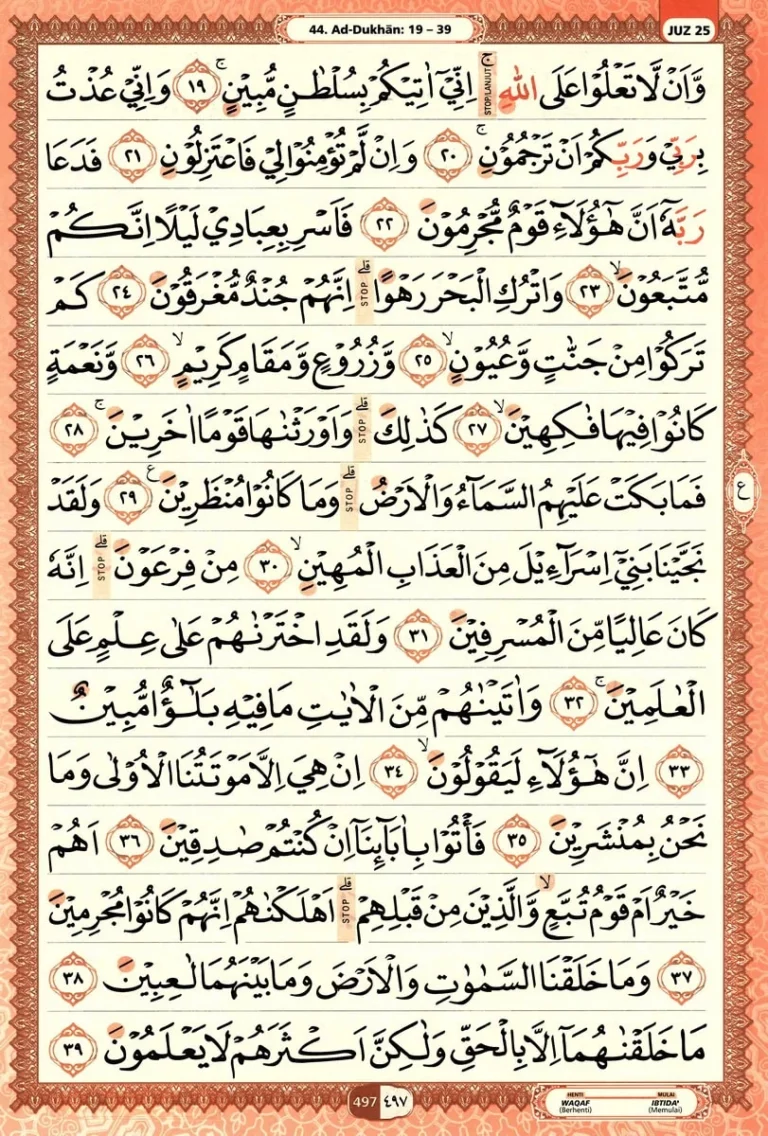 44. Ad-Dukhān: 19 – 39
JUZ 25
وَّاَنْ لَّا تَعْلُوْا عَلَى اللّٰهِ ۚ اِنِّيْٓ اٰتِيْكُمْ بِسُلْطٰنٍ مُّبِيْنٍۚ ١٩ وَاِنِّيْ عُذْتُ
بِرَبِّيْ وَرَبِّكُمْ اَنْ تَرْجُمُوْنِۚ ٢٠ وَاِنْ لَّمْ تُؤْمِنُوْا لِيْ فَاعْتَزِلُوْنِ ٢١ فَدَعَا
رَبَّهٗٓ اَنَّ هٰٓؤُلَاۤءِ قَوْمٌ مُّجْرِمُوْنَ ٢٢ فَاَسْرِ بِعِبَادِيْ لَيْلًا اِنَّكُمْ
مُّتَّبَعُوْنَۙ ٢٣ وَاتْرُكِ الْبَحْرَ رَهْوًاۗ اِنَّهُمْ جُنْدٌ مُّغْرَقُوْنَ ٢٤ كَمْ
تَرَكُوْا مِنْ جَنّٰتٍ وَّعُيُوْنٍۙ ٢٥ وَّزُرُوْعٍ وَّمَقَامٍ كَرِيْمٍۙ ٢٦ وَّنَعْمَةٍ
كَانُوْا فِيْهَا فٰكِهِيْنَۙ ٢٧ كَذٰلِكَ ۗ وَاَوْرَثْنٰهَا قَوْمًا اٰخَرِيْنَۚ ٢٨
فَمَا بَكَتْ عَلَيْهِمُ السَّمَاۤءُ وَالْاَرْضُۗ وَمَا كَانُوْا مُنْظَرِيْنَ ࣖ ٢٩ وَلَقَدْ
نَجَّيْنَا بَنِيْٓ اِسْرَاۤءِيْلَ مِنَ الْعَذَابِ الْمُهِيْنِۙ ٣٠ مِنْ فِرْعَوْنَ ۗ اِنَّهٗ
كَانَ عَالِيًا مِّنَ الْمُسْرِفِيْنَ ٣١ وَلَقَدِ اخْتَرْنٰهُمْ عَلٰى عِلْمٍ عَلَى
الْعٰلَمِيْنَ ۚ ٣٢ وَاٰتَيْنٰهُمْ مِّنَ الْاٰيٰتِ مَا فِيْهِ بَلٰۤؤٌا مُّبِيْنٌ
٣٣ اِنَّ هٰٓؤُلَاۤءِ لَيَقُوْلُوْنَۙ ٣٤ اِنْ هِيَ اِلَّا مَوْتَتُنَا الْاُوْلٰى وَمَا
نَحْنُ بِمُنْشَرِيْنَ ٣٥ فَأْتُوْا بِاٰبَاۤىِٕنَآ اِنْ كُنْتُمْ صٰدِقِيْنَ ٣٦ اَهُمْ
خَيْرٌ اَمْ قَوْمُ تُبَّعٍۙ وَّالَّذِيْنَ مِنْ قَبْلِهِمْۗ اَهْلَكْنٰهُمْ اِنَّهُمْ كَانُوْا مُجْرِمِيْنَ
٣٧ وَمَا خَلَقْنَا السَّمٰوٰتِ وَالْاَرْضَ وَمَا بَيْنَهُمَا لٰعِبِيْنَ ٣٨
مَا خَلَقْنٰهُمَآ اِلَّا بِالْحَقِّ وَلٰكِنَّ اَكْثَرَهُمْ لَا يَعْلَمُوْنَ ٣٩
ع
497 ٤٩٧
HENTI MULAI
WAQAF IBTIDA'
(Berhenti) (Memulai)